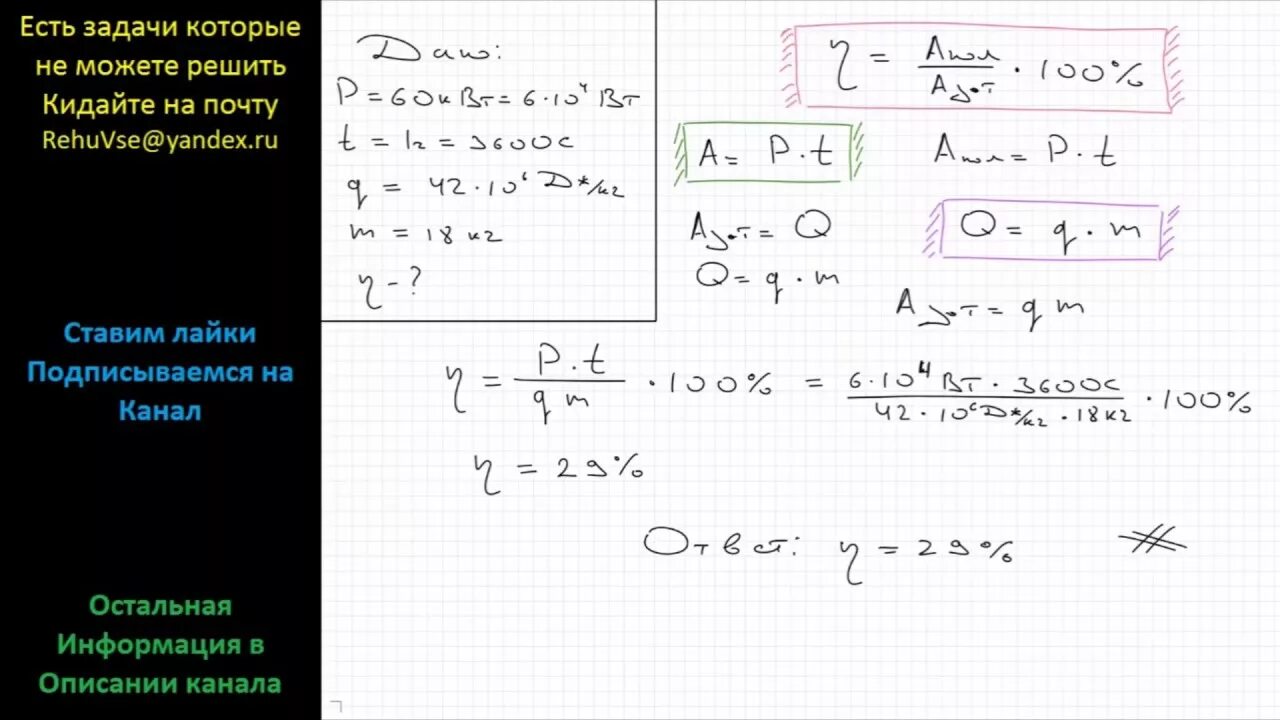 Есть задачи которые
не можете решить
Кидайте на почту
RehuVse@yandex.ru
Ставим лайки
Подписываемся на
Канал
Остальная
Информация в
Описании канала
Дано:
P = 60кВт = 6·10⁴ Вт
t = 1ч = 3600с
q = 42·10⁶ Дж/кг
m = 18 кг
η - ?
η = Aпол/Aзат · 100%
A = P·t
Aпол = P·t
Aзат = Q
Q = q·m
Q = q·m
Aзат = qm
η = P·t/qm · 100% = 6·10⁴ Вт·3600с/42·10⁶ Дж/кг·18кг · 100%
η = 29%
Ответ: η = 29%